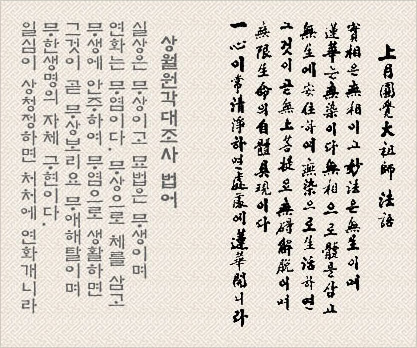 上月圓覺大祖師 法語
實相은無相이고妙法은無生이며
蓮華는無染이다無相으로體를삼고
無生에安住하여無染으로生活하면
그것이곧無上菩提요無碍解脫이며
無限生命의自體具現이다
一心이常清淨하면處處에蓮華開니라
상월원각대조사 법어
실상은 무상이고 묘법은 무생이며
연화는 무염이다. 무상으로 체를 삼고
무생에 안주하여 무염으로 생활하면
그것이 곧 무상보리요 무애해탈이며
무한생명의 자체 구현이다.
일심이 상청정하면 처처에 연화개니라